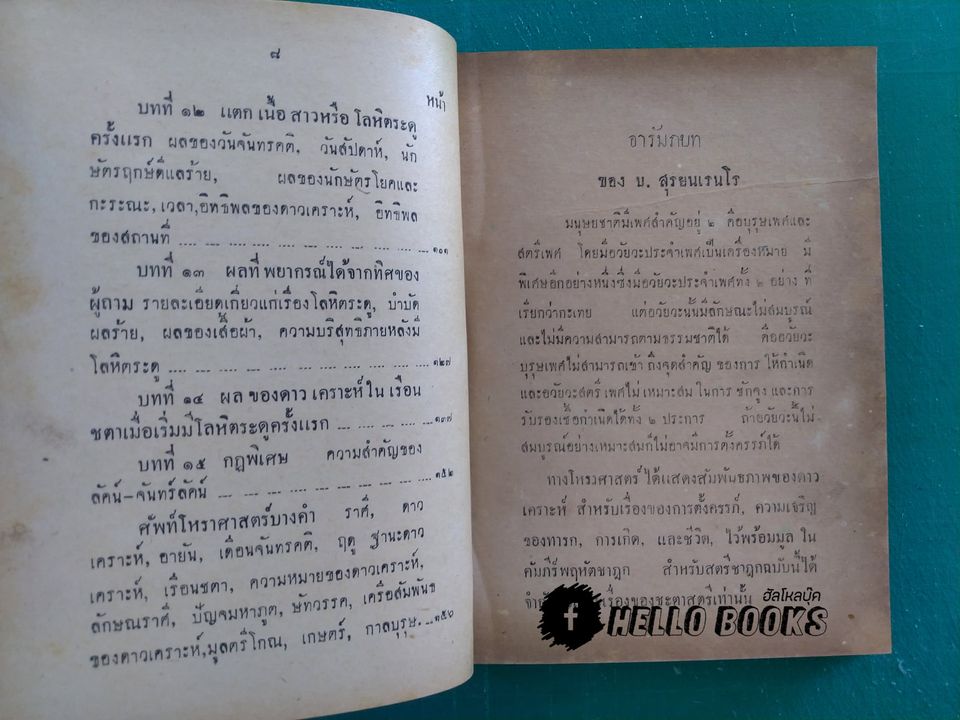 ๘
หน้า
บทที่ ๑๒ แตก เนื้อ สาวหรือ โลหิตระดู
ครั้งแรก ผลของวันจันทรคติ, วันสัปดาห์, นัก
ษัตรฤกษ์ดีแลร้าย, ผลของนักษัตรโยคและ
กะระณะ, เวลา, อิทธิพลของดาวเคราะห์, อิทธิพล
ของสถานที่ .... ๑๐๑
บทที่ ๑๓ ผลที่ พยากรณ์ได้จากทิศของ
ผู้ถาม รายละเอียดเกี่ยวแก่เรื่องโลหิตระดู, บำบัด
ผลร้าย, ผลของเสื้อผ้า, ความบริสุทธิภายหลังมี
โลหิตระดู .... ๑๒๗
บทที่ ๑๔ ผล ของดาว เคราะห์ ใน เรือน
ชตาเมื่อเริ่มมีโลหิตระดูครั้งแรก .... ๑๓๗
บทที่ ๑๕ กฎพิเศษ ความสำคัญของ
ลัคน์-จันทร์ลัคน์ .... ๑๕๒
ศัพท์โหราศาสตร์บางคำ ราศี, ดาว
เคราะห์, อายัน, เดือนจันทรคติ, ฤดู ฐานะดาว
เคราะห์, เรือนชตา, ความหมายของดาวเคราะห์,
ลักษณราศี, ปัญจมหาภูต, ษัทวรรค, เครือสัมพันธ
ของดาวเคราะห์, มูลตรีโกณ, เกษตร์, กาลบุรุษ. ... ๑๕๖
อารัมภบท
ของ บ. สุรยนเรนโร
มนุษยชาติมีเพศสำคัญอยู่ ๒ คือบุรุษเพศและ
สตรีเพศ โดยมีอวัยวะประจำเพศเป็นเครื่องหมาย มี
พิเศษอีกอย่างหนึ่งซึ่งมีอวัยวะประจำเพศทั้ง ๒ อย่าง ที่
เรียกว่ากะเทย แต่อวัยวะนั้นมีลักษณะไม่สมบูรณ์
และไม่มีความสามารถตามธรรมชาติได้ คืออวัยวะ
บุรุษเพศไม่สามารถเข้า ถึงจุดสำคัญ ของการ ให้กำเนิด
และอวัยวะสตรี เพศไม่ เหมาะสม ในการ ชักจูง และการ
รับรองเชื้อกำเนิดได้ทั้ง ๒ ประการ ถ้าอวัยวะนี้ไม่
สมบูรณ์อย่างเหมาะสมก็ไม่อาจมีการตั้งครรภ์ได้
ทางโหรวศาสตร์ ได้แสดงสัมพันธภาพของดาว
เคราะห์ สำหรับเรื่องของการตั้งครรภ์, ความเจริญ
ของทารก, การเกิด, และชีวิต, ไว้พร้อมมูล ใน
คัมภีร์พฤหัตชาฎก สำหรับสตรีชาฎกฉบับนี้ได้
เรื่องของชะตาสตรีเท่านั้น
ฮัลโหลบุ๊ค
f HELLO BOOKS